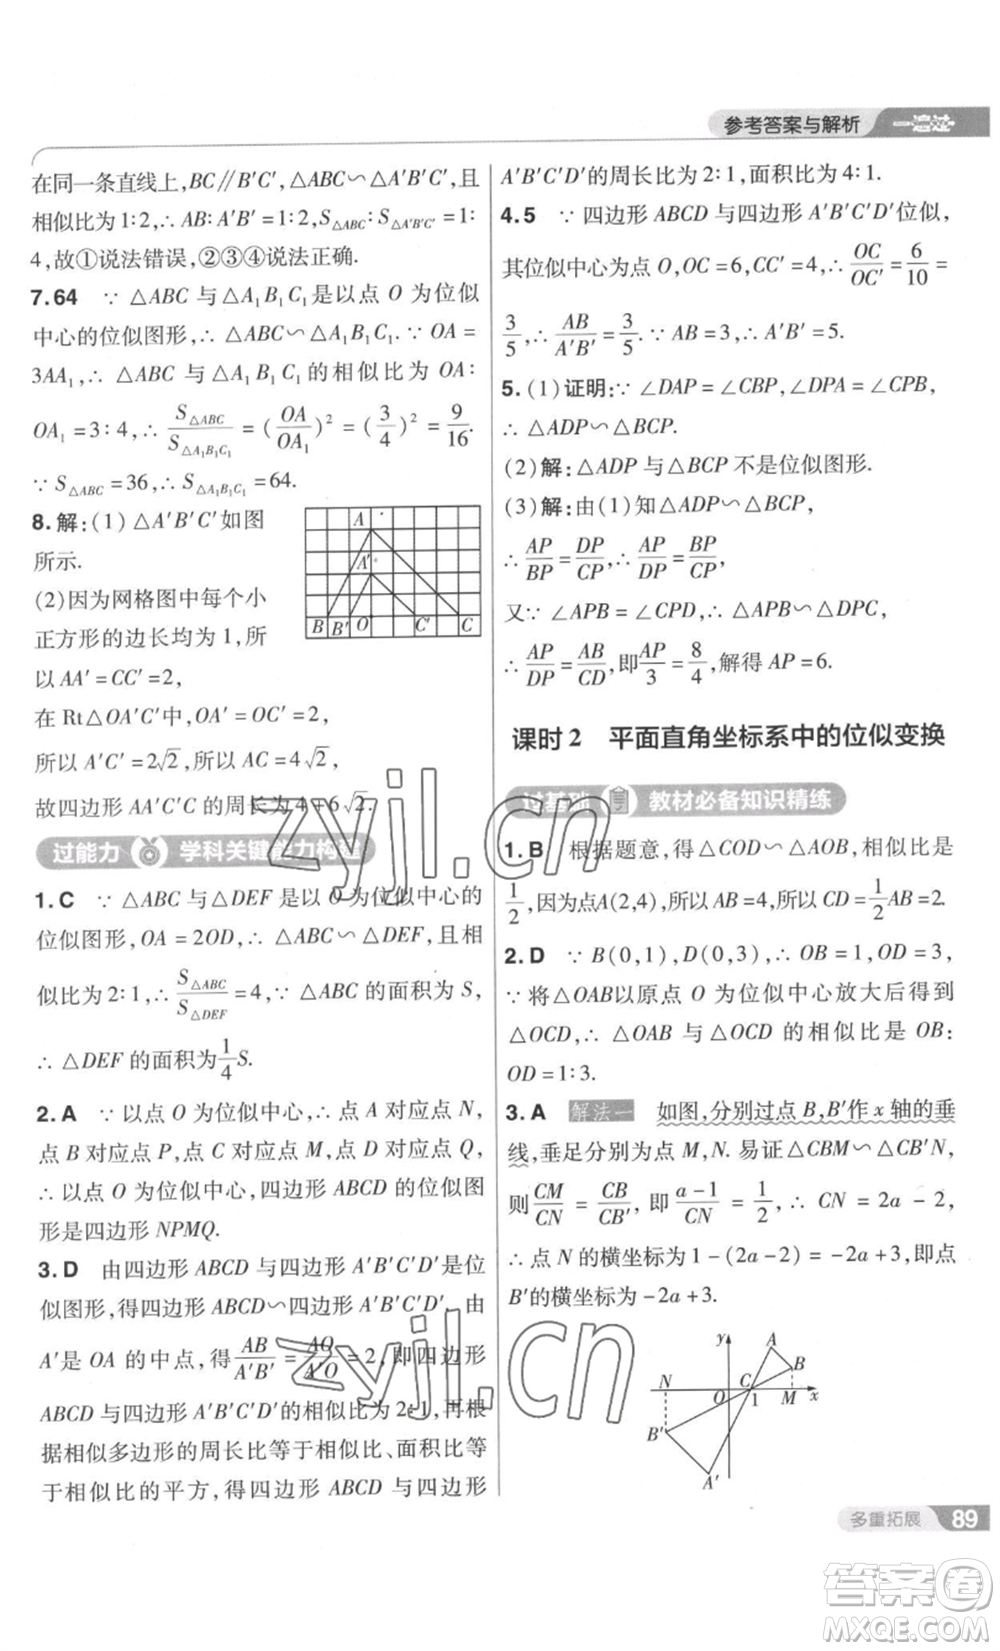 参考答案与解析 一遍过
在同一条直线上,BC∥B′C′,△ABC∽△A′B′C′,且
相似比为1∶2,∴AB∶A′B′=1∶2,S△ABC∶S△A′B′C′=1∶
4,故①说法错误,②③④说法正确.
7.64 ∵△ABC与△A₁B₁C₁是以点O为位似
中心的位似图形,∴△ABC∽△A₁B₁C₁.∵OA=
3AA₁,∴△ABC与△A₁B₁C₁的相似比为OA∶
OA₁=3∶4,∴S△ABC/S△A₁B₁C₁=(OA/OA₁)²=(3/4)²=9/16.
∵S△ABC=36,∴S△A₁B₁C₁=64.
8.解:(1)△A′B′C′如图
所示.
(2)因为网格图中每个小
正方形的边长均为1,所
以AA′=CC′=2,
A
A′
B B′ O C′ C
在Rt△OA′C′中,OA′=OC′=2,
所以A′C′=2√2,所以AC=4√2,
故四边形AA′C′C的周长为4+6√2.
过能力 学科关键能力构建
1.C ∵△ABC与△DEF是以O为位似中心的
位似图形,OA=2OD,∴△ABC∽△DEF,且相
似比为2∶1,∴S△ABC/S△DEF=4,∵△ABC的面积为S,
∴△DEF的面积为1/4S.
2.A ∵以点O为位似中心,∴点A对应点N,
点B对应点P,点C对应点M,点D对应点Q,
∴以点O为位似中心,四边形ABCD的位似图
形是四边形NPMQ.
3.D 由四边形ABCD与四边形A′B′C′D′是位
似图形,得四边形ABCD∽四边形A′B′C′D′.由
A′是OA的中点,得AB/A′B′=AO/A′O=2,即四边形
ABCD与四边形A′B′C′D′的相似比为2∶1,再根
据相似多边形的周长比等于相似比、面积比等
于相似比的平方,得四边形ABCD与四边形
A′B′C′D′的周长比为2∶1,面积比为4∶1.
4.5 ∵四边形ABCD与四边形A′B′C′D′位似,
其位似中心为点O,OC=6,CC′=4,∴OC/OC′=6/10=
3/5,∴AB/A′B′=3/5.∵AB=3,∴A′B′=5.
5.(1)证明:∵∠DAP=∠CBP,∠DPA=∠CPB,
∴△ADP∽△BCP.
(2)解:△ADP与△BCP不是位似图形.
(3)解:由(1)知△ADP∽△BCP,
∴AP/BP=DP/CP,∴AP/DP=BP/CP,
又∵∠APB=∠CPD,∴△APB∽△DPC,
∴AP/DP=AB/CD,即AP/3=8/4,解得AP=6.
课时2 平面直角坐标系中的位似变换
过基础 教材必备知识精练
1.B 根据题意,得△COD∽△AOB,相似比是
1/2,因为点A(2,4),所以AB=4,所以CD=1/2AB=2.
2.D ∵B(0,1),D(0,3),∴OB=1,OD=3,
∵将△OAB以原点O为位似中心放大后得到
△OCD,∴△OAB与△OCD的相似比是OB∶
OD=1∶3.
3.A 解法一 如图,分别过点B,B′作x轴的垂
线,垂足分别为点M,N.易证△CBM∽△CB′N,
则CM/CN=CB/CB′,即a-1/CN=1/2,∴CN=2a-2,
∴点N的横坐标为1-(2a-2)=-2a+3,即点
B′的横坐标为-2a+3.
y
A
B
N O C 1 M x
B′
A′
多重拓展 89
zyjl.cn
zyjl.cn
答案圈
MXQE.COM